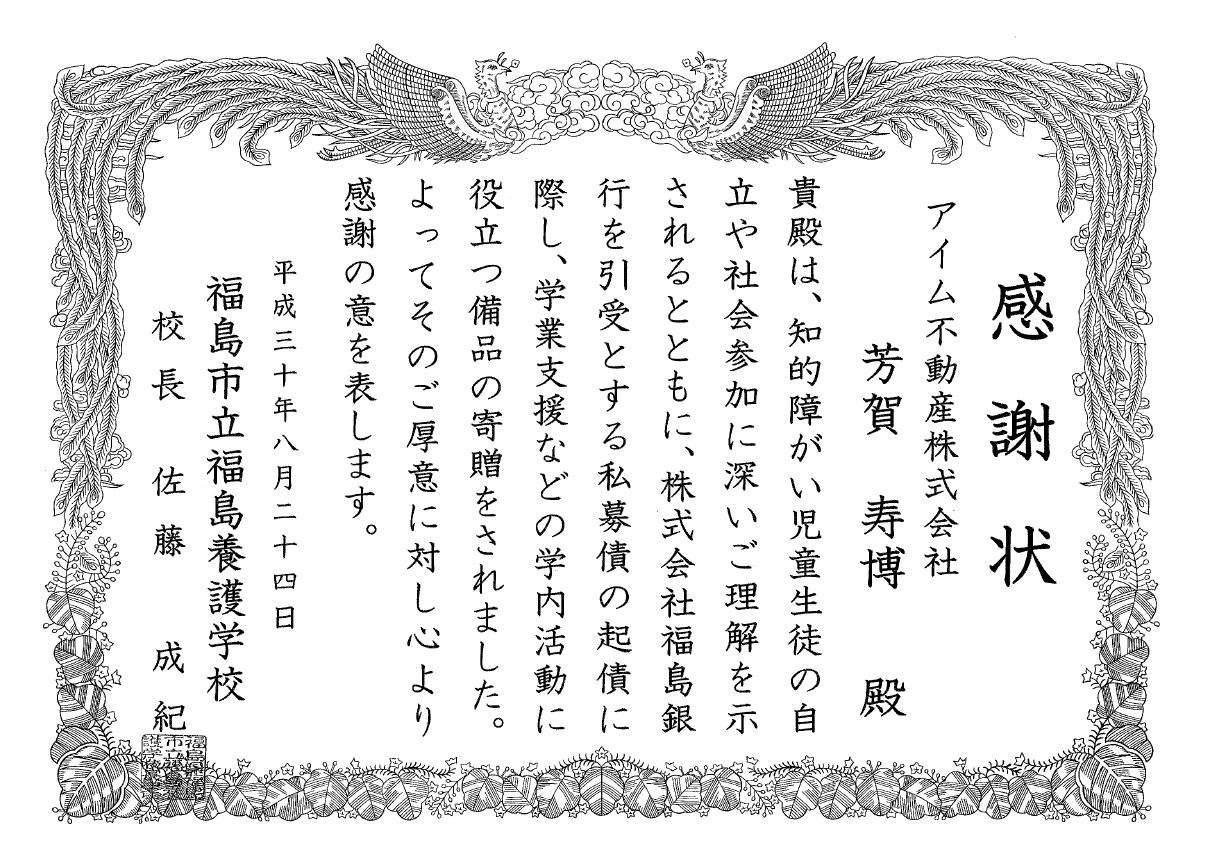 感謝状
アイム不動産株式会社
芳賀 寿博 殿
貴殿は、知的障がい児童生徒の自
立や社会参加に深いご理解を示
されるとともに、株式会社福島銀
行を引受とする私募債の起債に
際し、学業支援などの学内活動に
役立つ備品の寄贈をされました。
よってそのご厚意に対し心より
感謝の意を表します。
平成三十年八月二十四日
福島市立福島養護学校
校長 佐藤 成紀